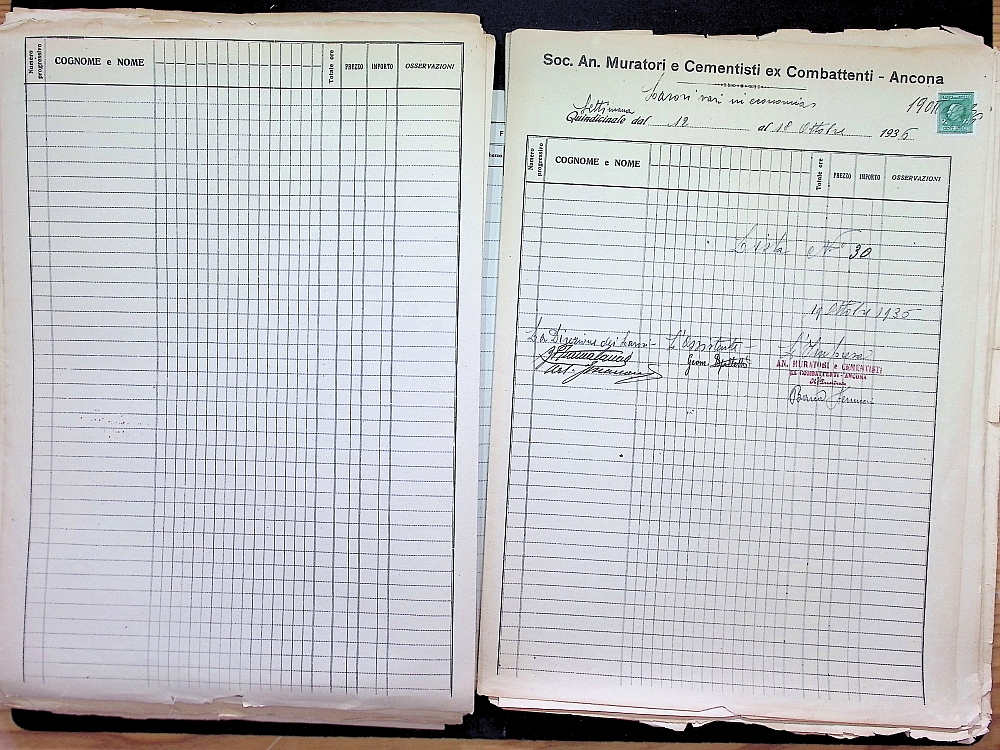 Numero progressivo COGNOME e NOME Totale ore PREZZO IMPORTO OSSERVAZIONI
Soc. An. Muratori e Cementisti ex Combattenti - Ancona
Lavori vari in economia
Settimana
Quindicinale dal 12 al 18 Ottobre 1936
Numero progressivo COGNOME e NOME Totale ore PREZZO IMPORTO OSSERVAZIONI
Lista N° 30
19 Ottobre 1936
La Direzione dei Lavori - L'Assistente L'Impresa
Geom.
AN. MURATORI e CEMENTISTI
EX COMBATTENTI - ANCONA